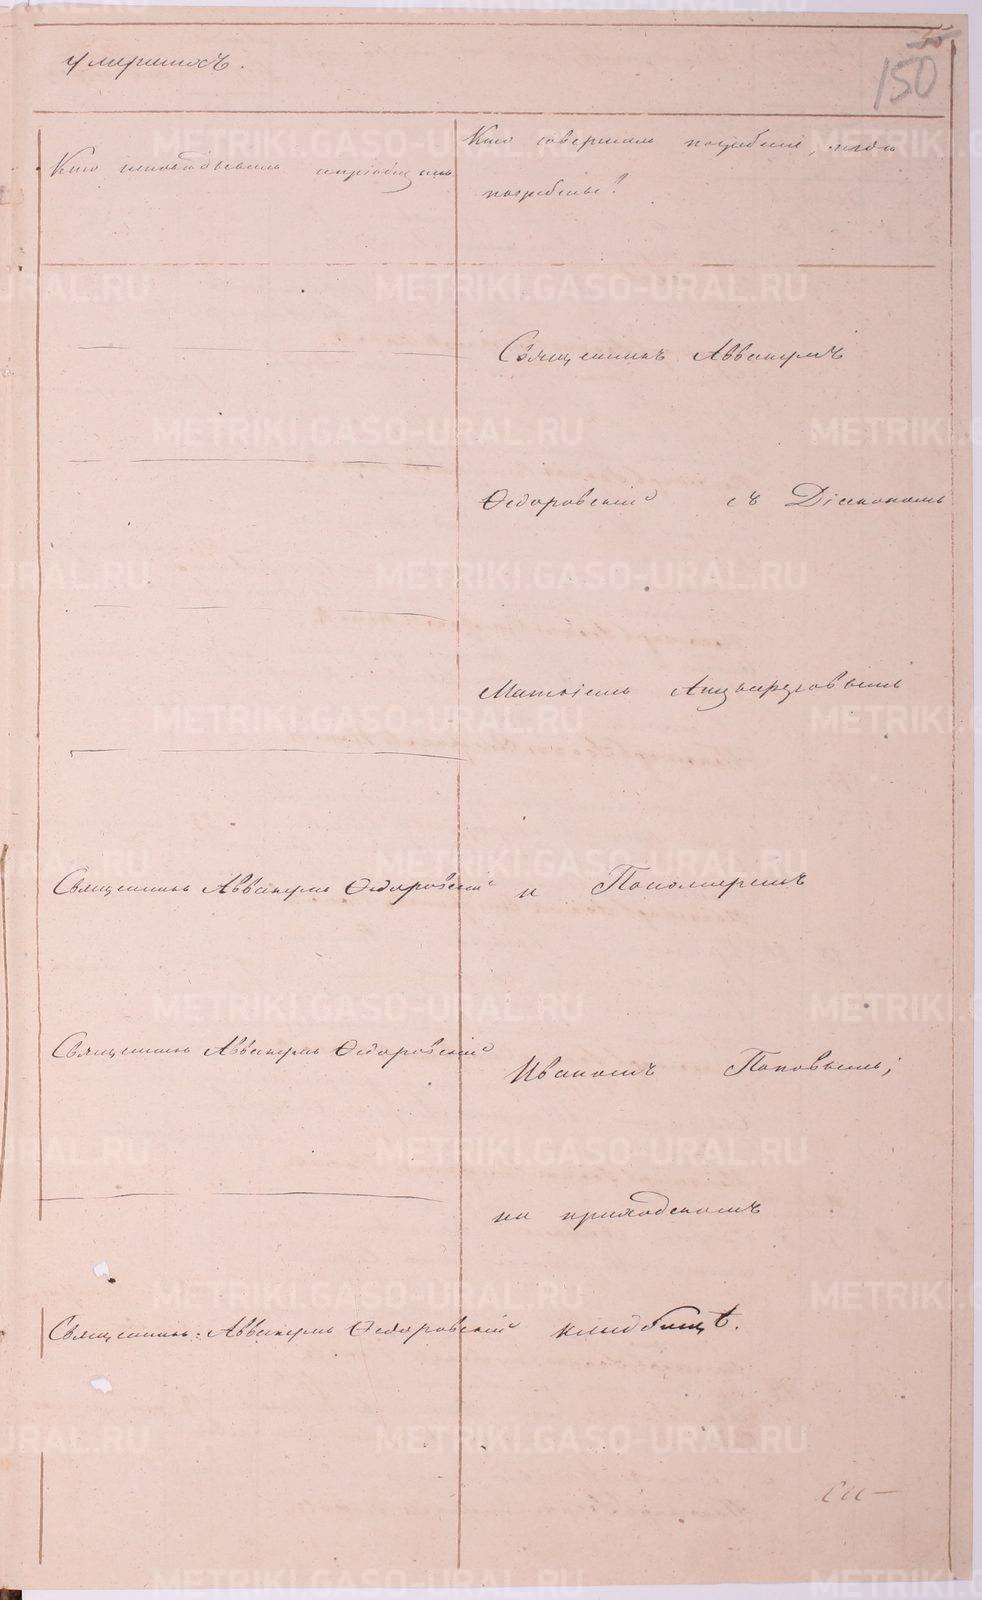 умершихъ.
150
Кто исповѣдывалъ и пріобщалъ
Кто совершалъ погребеніе, и гдѣ
погребены?
Священникъ Аввакумъ
Ѳедоровскій съ Діакономъ
Матвіемъ
Священникъ Аввакумъ Ѳедоровскій и Пономаремъ
Священникъ Аввакумъ Ѳедоровскій
Иваномъ Поповымъ;
на приходскомъ
Священникъ Аввакумъ Ѳедоровскій кладбищѣ.
METRIKI.GASO-URAL.RU